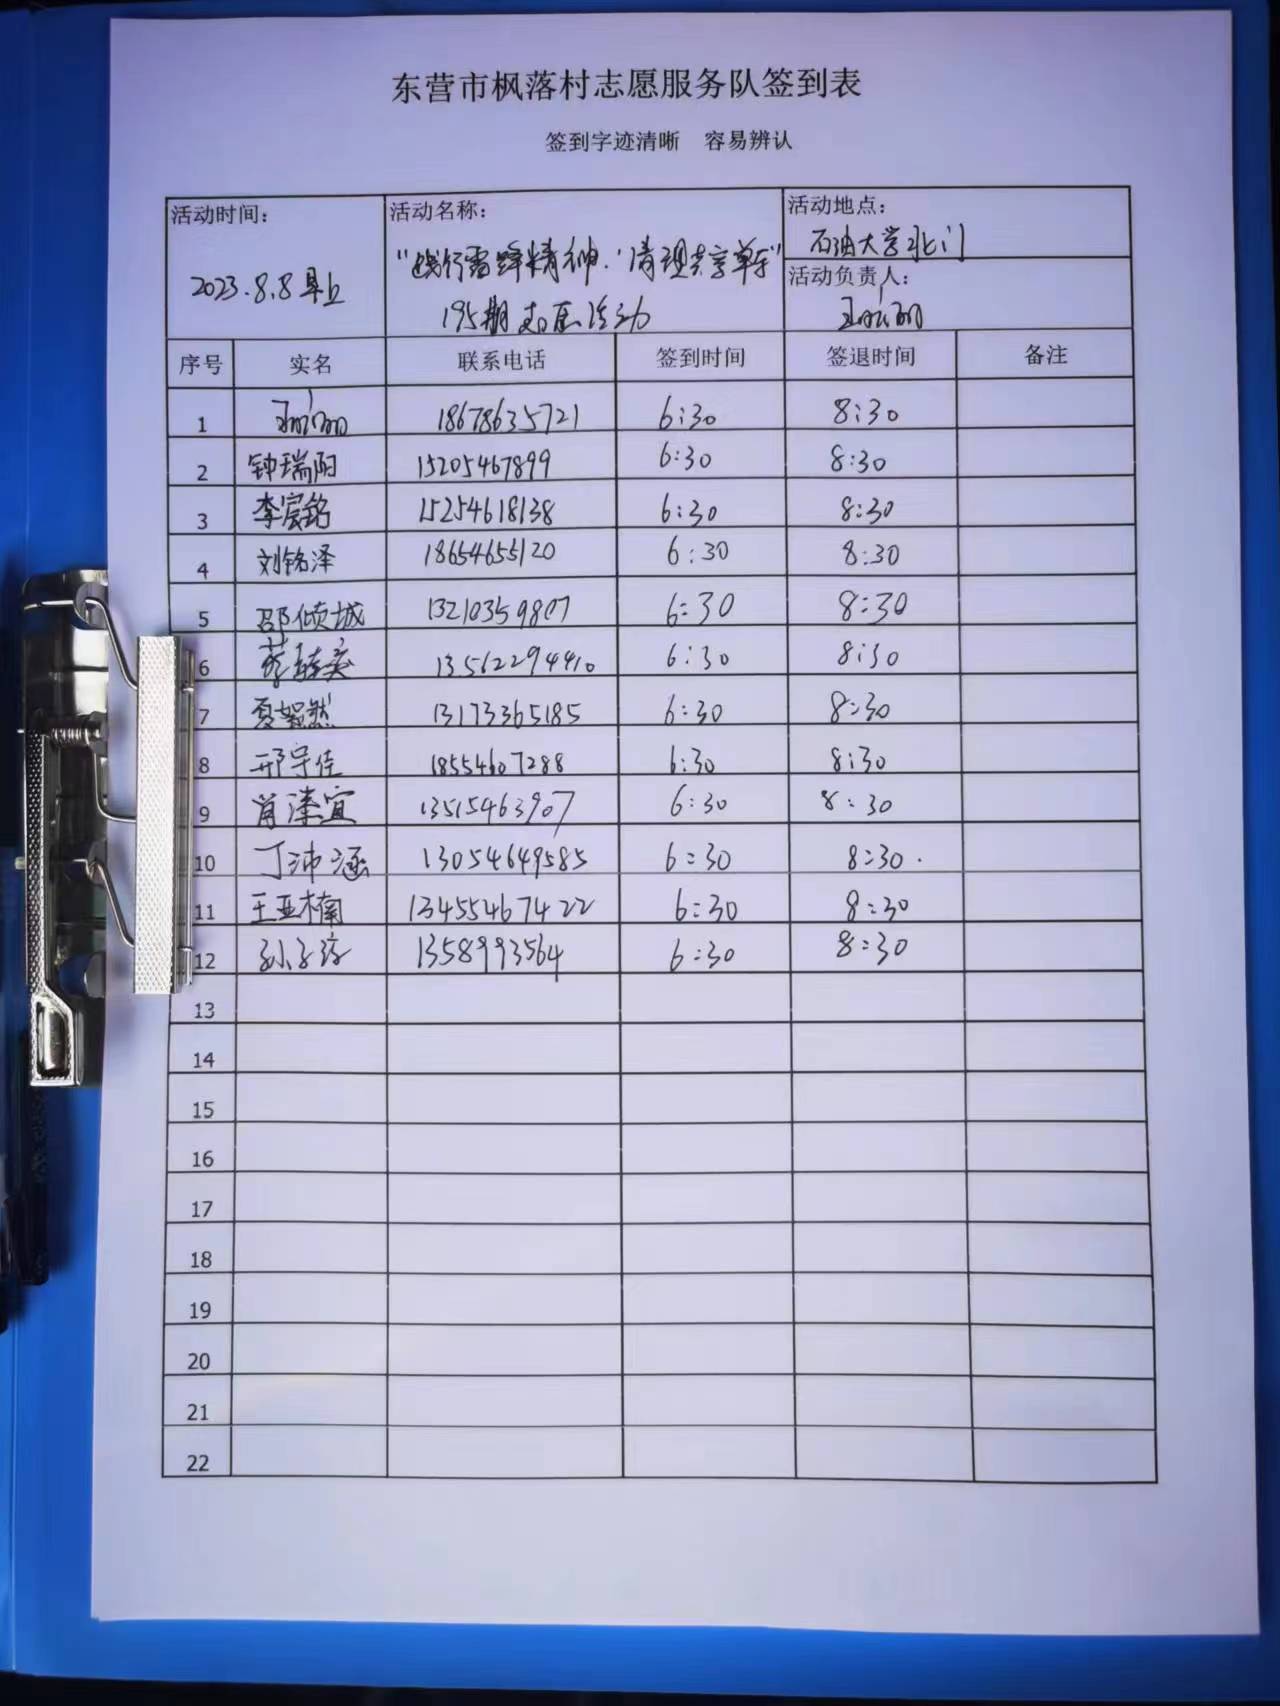 东营市枫落村志愿服务队签到表
签到字迹清晰 容易辨认
活动时间：
2023.8.8 早上
活动名称：
“践行雷锋精神.‘清理共享单车”
195期志愿活动
活动地点：
石油大学北门
活动负责人：
序号 实名 联系电话 签到时间 签退时间 备注
1 18678635721 6:30 8:30
2 钟瑞阳 15205467899 6:30 8:30
3 李宸铭 15254618138 6:30 8:30
4 刘铭泽 18654655120 6:30 8:30
5 邵倾城 13210359807 6:30 8:30
6 13562294410 6:30 8:30
7 夏貇然 13173365185 6:30 8:30
8 邢宇佳 18554607288 6:30 8:30
9 肖溱宜 13515463907 6:30 8:30
10 丁沛涵 13054649585 6:30 8:30.
11 王亚楠 13455467422 6:30 8:30
12 1358993564 6:30 8:30
13
14
15
16
17
18
19
20
21
22